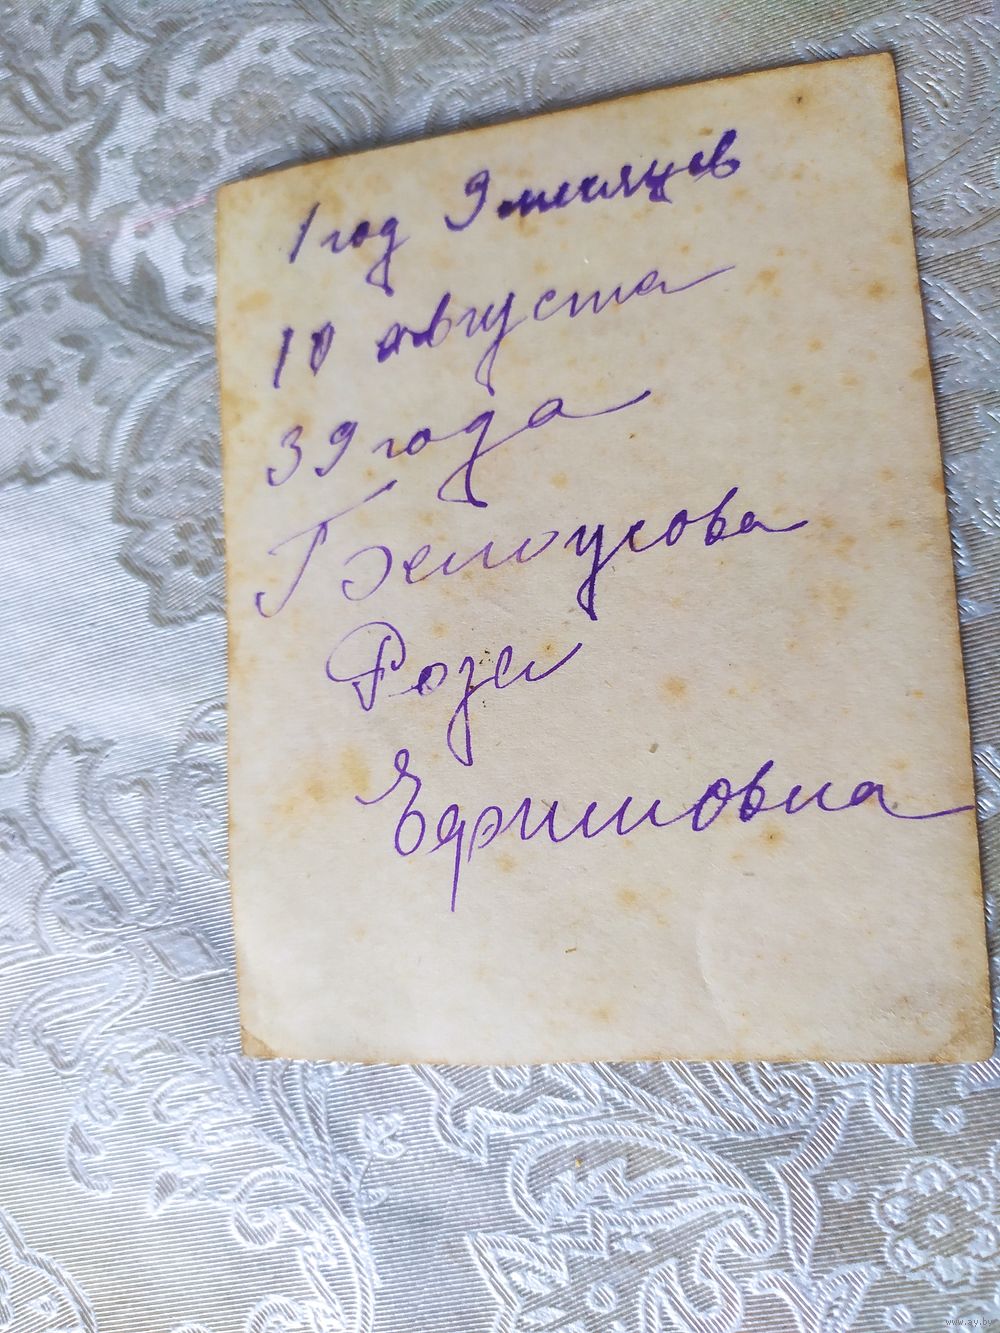 1 год 9 месяцев
10 августа
39 года
Белоусова
Роза
Ефимовна
www.ay.by